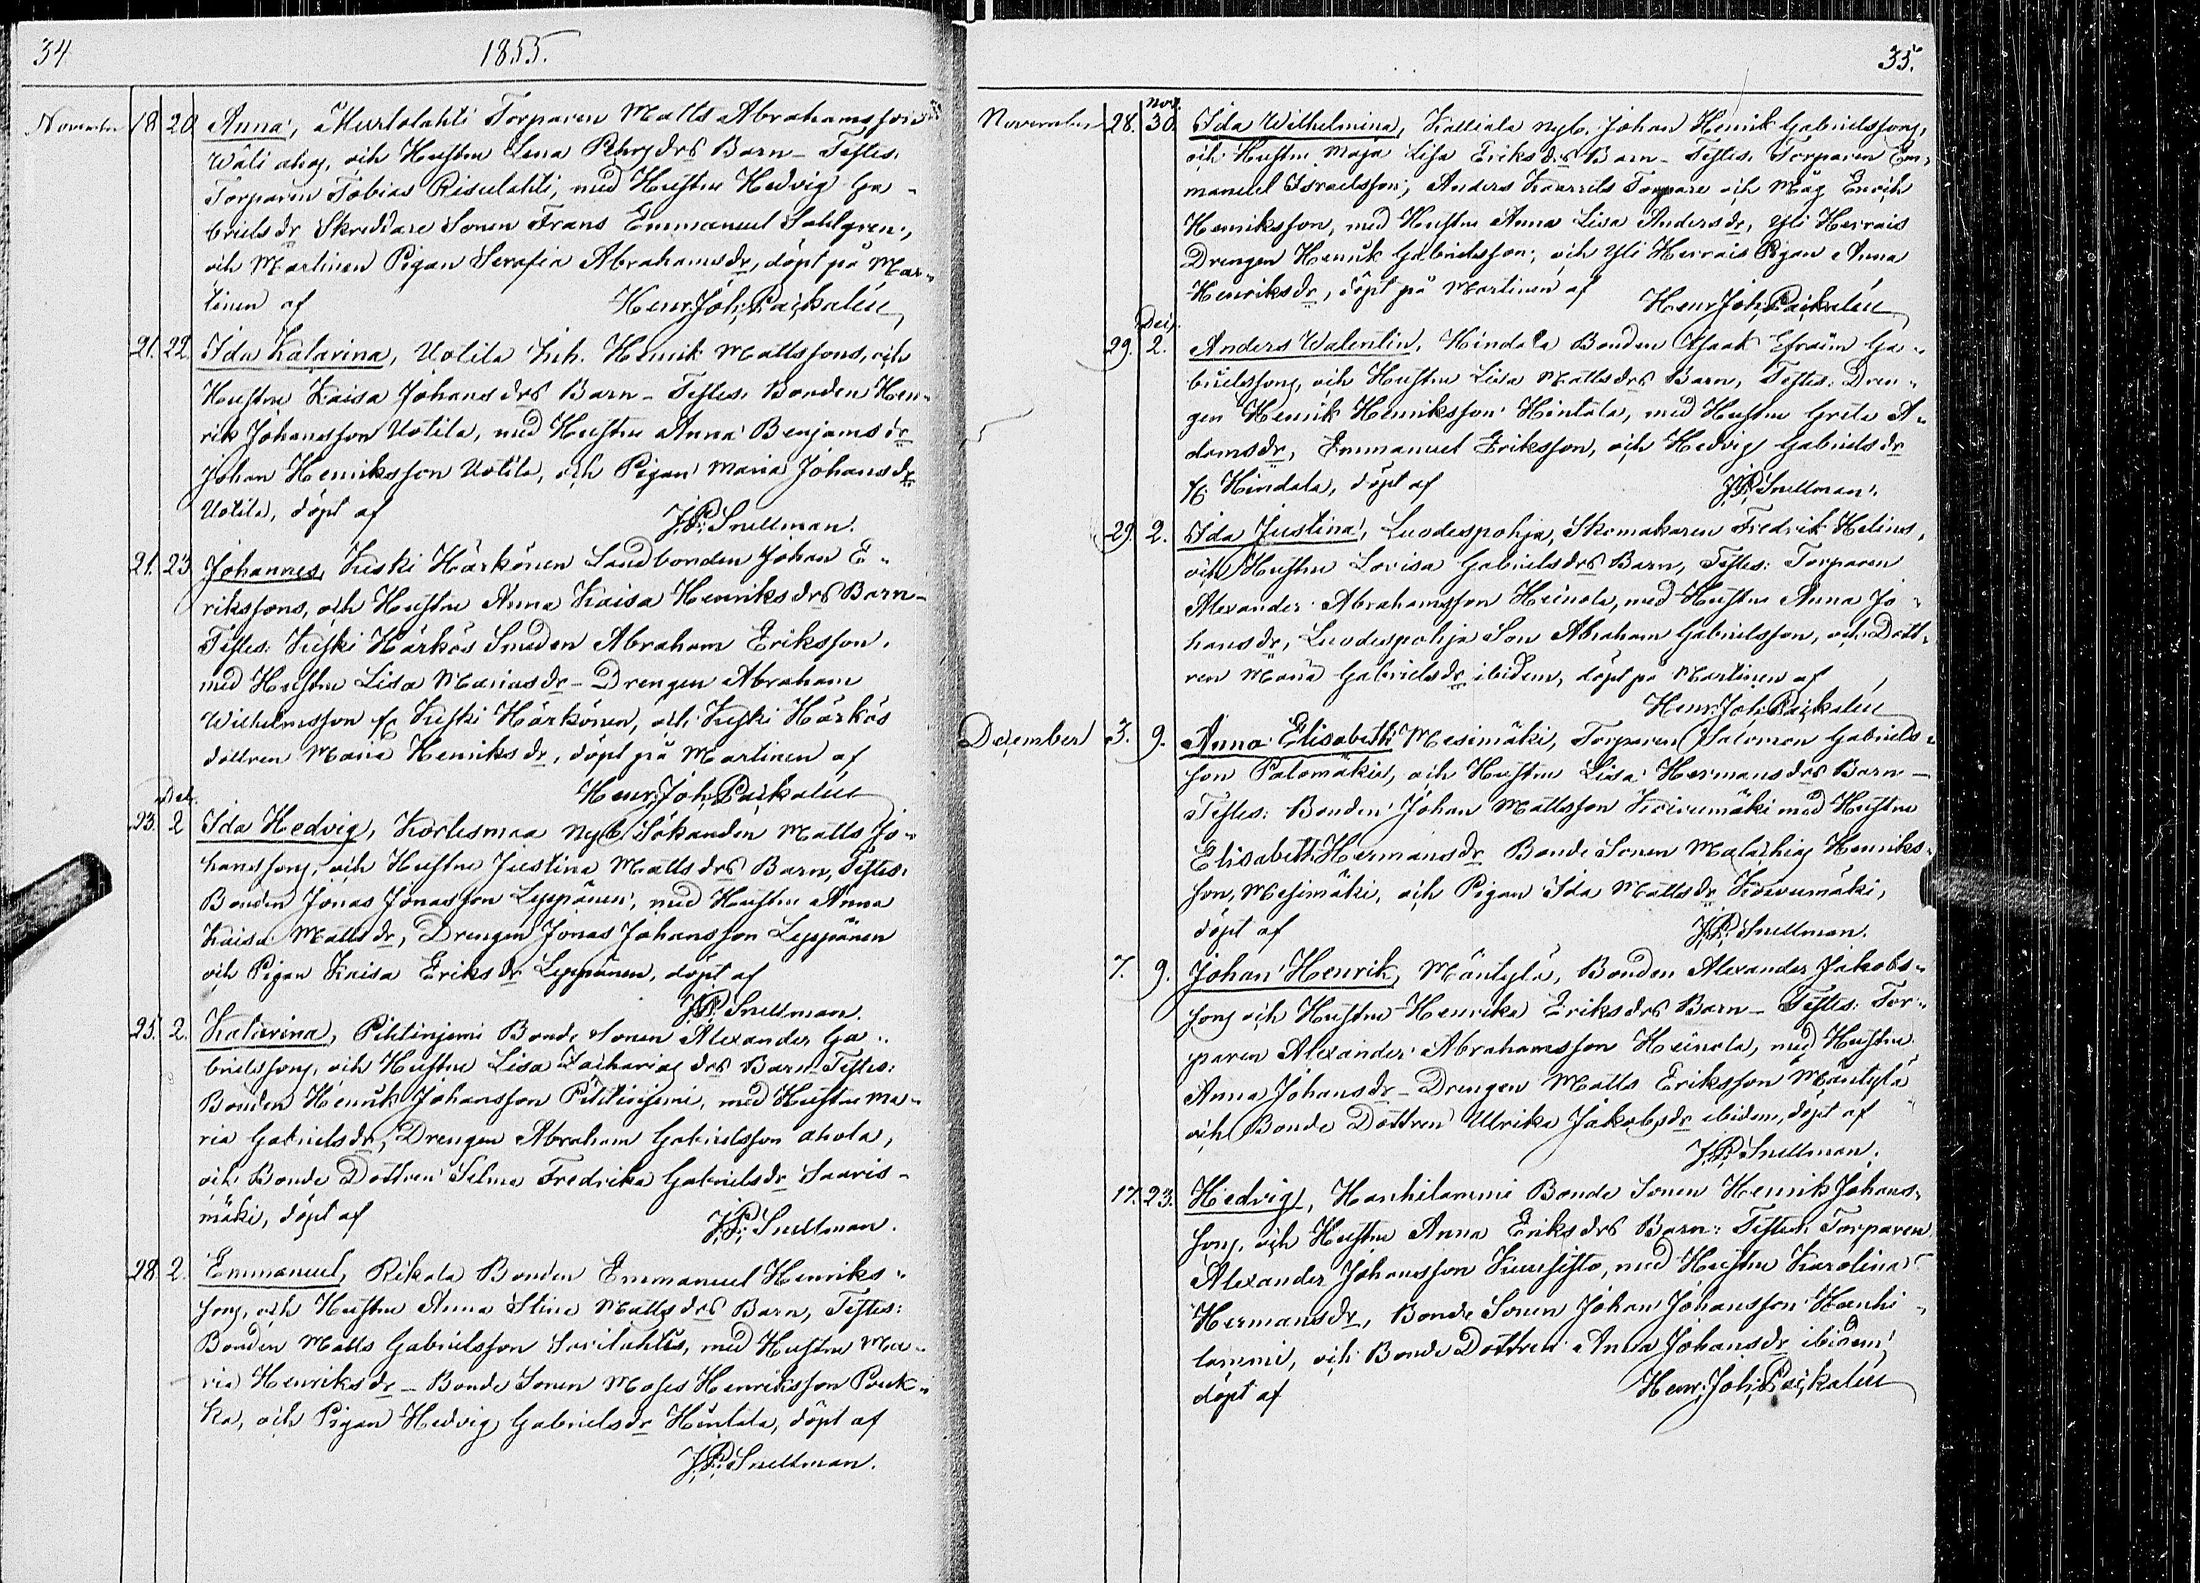 34 1855.
November 18 20 Anna, Murtolahti Torparen Matts Abrahamsson
Wäliahos, och Hustru Lena Pehrsdrs Barn – Testes.
Torparen Tobias Risulahti, med Hustru Hedvig Ga-
brielsdr Skreddare Sonen Frans Emmanuel Sahlgren,
och Martinen Pigan Serafia Abrahamsdr, döpt på Mar-
tinen af Henr. Joh. Paçkalén
21. 22. Ida Katarina, Uotila Inh. Henrik Mattssons, och
Hustru Kaisa Johansdrs Barn – Testes. Bonden Hen-
rik Johansson Uotila, med Hustru Anna Benjamsdr
Johan Henriksson Uotila, och Pigan Maria Johansdr
Uotila, döpt af J.P. Snellman.
21. 23 Johannes, Kuski Härkönen Landbonden Johan E-
rikssons, och Hustru Anna Kaisa Henriksdrs Barn –
Testes: Kuski Härkös Smeden Abraham Eriksson,
med Hustru Lisa Mariasdr – Drengen Abraham
Wilhelmsson fr Kuski Härkönen, och Kuski Härkös
dottren Maria Henriksdr, döpt på Martinen af
Henr. Joh. Paçkalén
Dec.
23. 2 Ida Hedvig, Korlismaa Nyb. Sökanden Matts Jo-
hanssons, och Hustru Justina Mattsdrs Barn, Testes.
Bonden Jonas Jonasson Leppänen, med Hustru Anna
Kaisa Mattsdr, Drengen Jonas Johansson Leppänen
och Pigan Kaisa Eriksdr Leppänen, döpt af
J.P. Snellman.
25. 2. Katarina, Pihtinjemi Bonde Sonen Alexander Ga-
brielssons, och Hustru Lisa Zachariasdrs Barn Testes:
Bonden Henrik Johansson Pihtinjemi, med Hustru Ma-
ria Gabrielsdr, Drengen Abraham Gabrielsson Ahola,
och Bonde Dottren Selma Fredrika Gabrielsdr Saaris-
mäki, döpt af J.P. Snellman.
28. 2. Emmanuel, Rikala Bonden Emmanuel Henriks-
sons, och Hustru Anna Stina Mattsdrs Barn, Testes:
Bonden Matts Gabrielsson med Hustru Ma-
ria Henriksdr – Bonde Sonen Moses Henriksson Pouk-
ka, och Pigan Hedvig Gabrielsdr Hintala, döpt af
J.P. Snellman.
35.
November 28. Nov. 30. Ida Wilhelmina, Kattiala Nyb. Johan Henrik Gabrielssons,
och Hustru Maja Lisa Eriksdrs Barn – Testes. Torparen Em-
manuel Israelsson, Anders Torpare och Måg Enrik
Henriksson, med Hustru Anna Lisa Andersdr, Yli Herrais
Drengen Henrik Gabrielsson, och Yli Herrais Pigan Anna
Henriksdr, döpt på Martinen af Henr. Joh. Paçkalén
Dec.
29. 2. Anders Walentin, Hindala Bonden Isaak Efraim Ga-
brielssons, och Hustru Lisa Mattsdrs Barn, Testes: Dren-
gen Henrik Henriksson Hintala, med Hustru Greta A-
damsdr, Emmanuel Eriksson, och Hedvig Gabrielsdr
fr. Hindala, döpt af J.P. Snellman.
29. 2. Ida Justina, Luodespohja, Skomakaren Fredrik Helins,
och Hustru Lovisa Gabrielsdrs Barn, Testes: Torparen
Alexander Abrahamsson Heinola, med Hustru Anna Jo-
hansdr, Luodespohja Son Abraham Gabrielsson, och Dott-
ren Maria Gabrielsdr ibidem, döpt på Martinen af
Henr. Joh. Paçkalén
December 3. 9. Anna Elisabeth Mesimäki, Torparen Salomon Gabriels-
son Palomäkis, och Hustru Lisa Hermansdrs Barn –
Testes: Bonden Johan Mattsson Koivumäki med Hustru
Elisabeth Hermansdr Bonde Sonen Malachias Henriks-
son, Mesimäki, och Pigan Ida Mattsdr Koivumäki,
döpt af J.P. Snellman.
7. 9. Johan Henrik, Mäntylä, Bonden Alexander Jakobs-
sons och Hustru Henrika Eriksdrs Barn – Testes: Tor-
paren Alexander Abrahamsson Heinola, med Hustru
Anna Johansdr – Drengen Matts Eriksson Mäntylä
och Bonde Dottren Ulrika Jakobsdr ibidem, döpt af
J.P. Snellman.
17. 23. Hedvig, Hanhilammi Bonde Sonen Henrik Johans-
sons, och Hustru Anna Eriksdrs Barn: Testes: Torparen
Alexander Johansson Kuusisto, med Hustru Karolina
Hermansdr, Bonde Sonen Johan Johansson Hanhi-
lammi, och Bonde Dottren Anna Johansdr ibidem,
döpt af Henr. Joh. Paçkalén